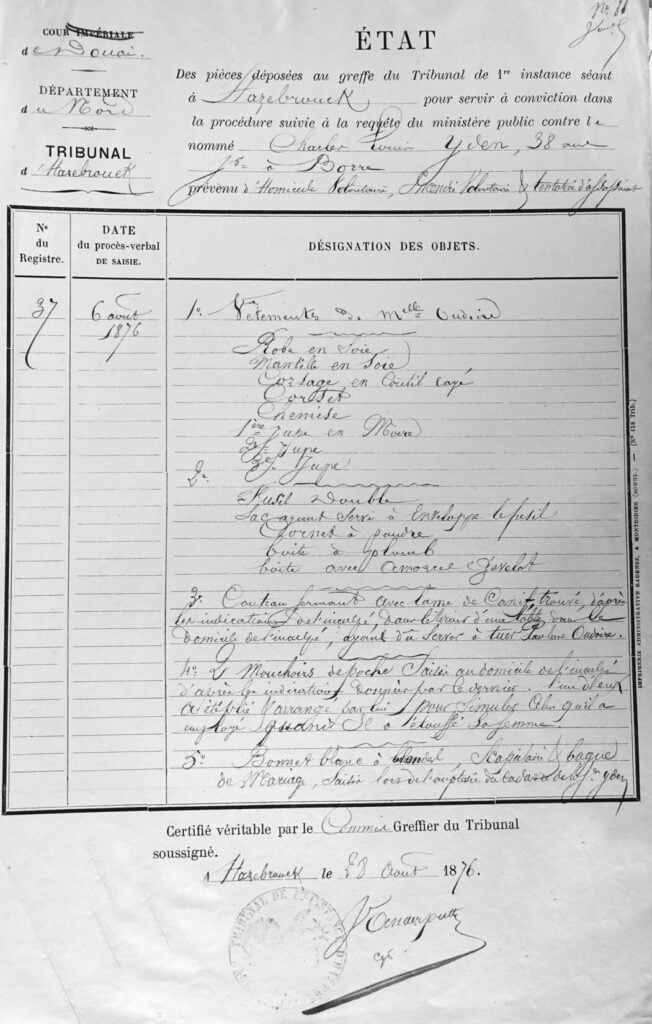 Nº 11
COUR IMPÉRIALE
de Douai.
DÉPARTEMENT
du Nord
TRIBUNAL
d'Hazebrouck
ÉTAT
Des pièces déposées au greffe du Tribunal de 1re instance séant
à Hazebrouck pour servir à conviction dans
la procédure suivie à la requête du ministère public contre le
nommé Charles Louis Yden, 38 ans
à Borre
prévenu d'Homicide Volontaire, Volontaire & tentative d'assassinat
Nº du Registre.
DATE du procès-verbal DE SAISIE.
DÉSIGNATION DES OBJETS.
37
6 août 1876
1º Vêtements de Melle Oudoire
Robe en Soie
Mantille en Soie
Corsage en Coutil rayé
Corset
Chemise
1ère Jupe en Moire
2e Jupe
3e Jupe
2º
Fusil Double
Sac ayant Servi à Envelopper le fusil
Cornet à poudre
boîte à plomb
boîte avec amorces Gévelot
3º Couteau fermant avec lame de Canif trouvé, d'après
les indications de l'inculpé, dans le tiroir d'une table dans le
domicile de l'inculpé, ayant du Servir à tuer Pauline Oudoire.
4º 2 Mouchoirs de poche Saisis au domicile de l'inculpé
d'après les indications données par ce dernier. l'un d'eux
a été plié & arrangé par lui pour Simuler Celui qu'il a
employé quand Il a étouffé Sa femme.
5º Bonnet blanc à Scapulaire & bague
de Mariage, Saisis lors de l'autopsie du cadavre de la fme Yden
Certifié véritable par le Commis Greffier du Tribunal
soussigné.
A Hazebrouck le 28 Août 1876.
TRIBUNAL DE 1RE INSTANCE D'HAZEBROUCK
IMPRIMERIE ADMINISTRATIVE RADENEZ, A MONTDIDIER (SOMME). — (Nº 158 Trib.)